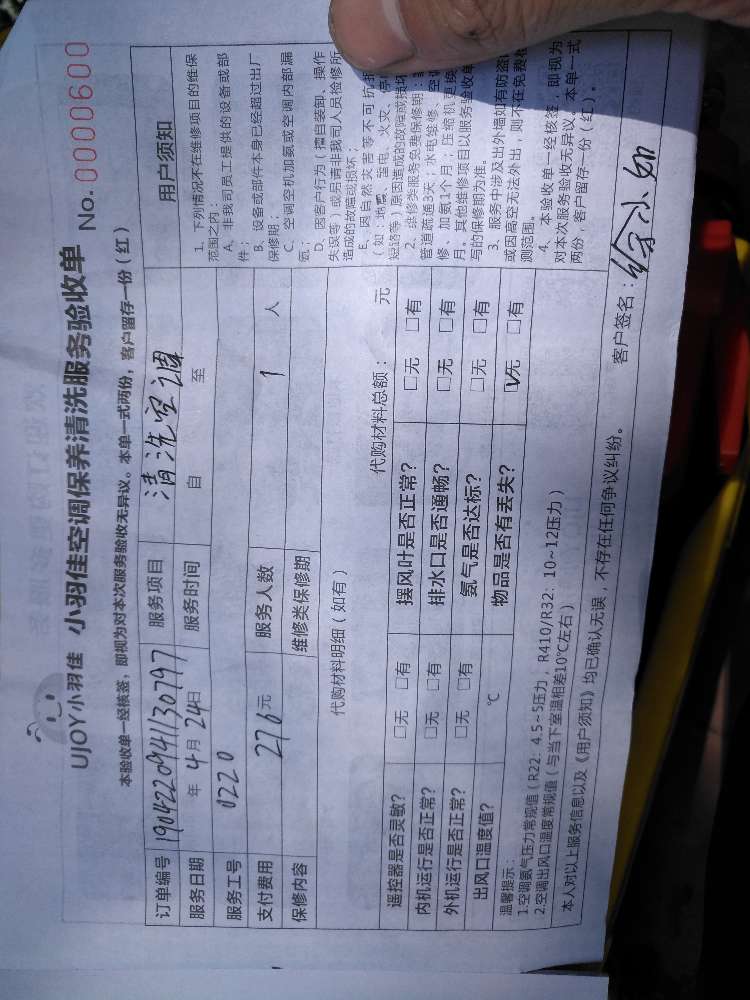 UJOY 小羽佳 小羽佳空调保养清洗服务验收单 No. 0000600
本验收单一经核签，即视为对本次服务验收无异议。本单一式两份，客户留存一份（红）
订单编号 1904220941130797 服务项目 清洗空调
服务日期 年 4月 24日 服务时间 自 至
服务工号 0220
支付费用 276元 服务人数 1 人
保修内容 维修类保修期
代购材料明细（如有） 代购材料总额： 元
遥控器是否灵敏？ □无 □有 摆风叶是否正常？ □无 □有
内机运行是否正常？ □无 □有 排水口是否通畅？ □无 □有
外机运行是否正常？ □无 □有 氨气是否达标？ □无 □有
出风口温度值？ ℃ 物品是否有丢失？ ☑无 □有
温馨提示：
1.空调氨气压力常规值（R22：4.5~5压力，R410/R32：10~12压力）
2.空调出风口温度常规值（与当下室温相差10℃左右）
本人对以上服务信息以及《用户须知》均已确认无误，不存在任何争议纠纷。 客户签名：徐小如
用户须知
1、下列情况不在维修项目的维保
范围之内：
A、非我司员工提供的设备或部
件；
B、设备或部件本身已经超过出厂
保修期；
C、空调空机加氨或空调内部漏
氨；
D、因客户行为（擅自装卸、操作
失误等）或另请非我司人员检修所
造成的故障或损坏；
E、因自然灾害等不可抗
（如：地震、雷电、火灾、
短路等）原因造成的故障或损坏
2、维修类服务免费保修期：
管道疏通3天；水电维修、空
修、加氨1个月；压缩机更换
月。其他维修项目以服务验收单
写的保修期为准。
3、服务中涉及出外墙如有防盗
或因高空无法外出，则不在免费
测范围。
4、本验收单一经核签，即视为
对本次服务验收无异议，本单一式
两份，客户留存一份（红）。